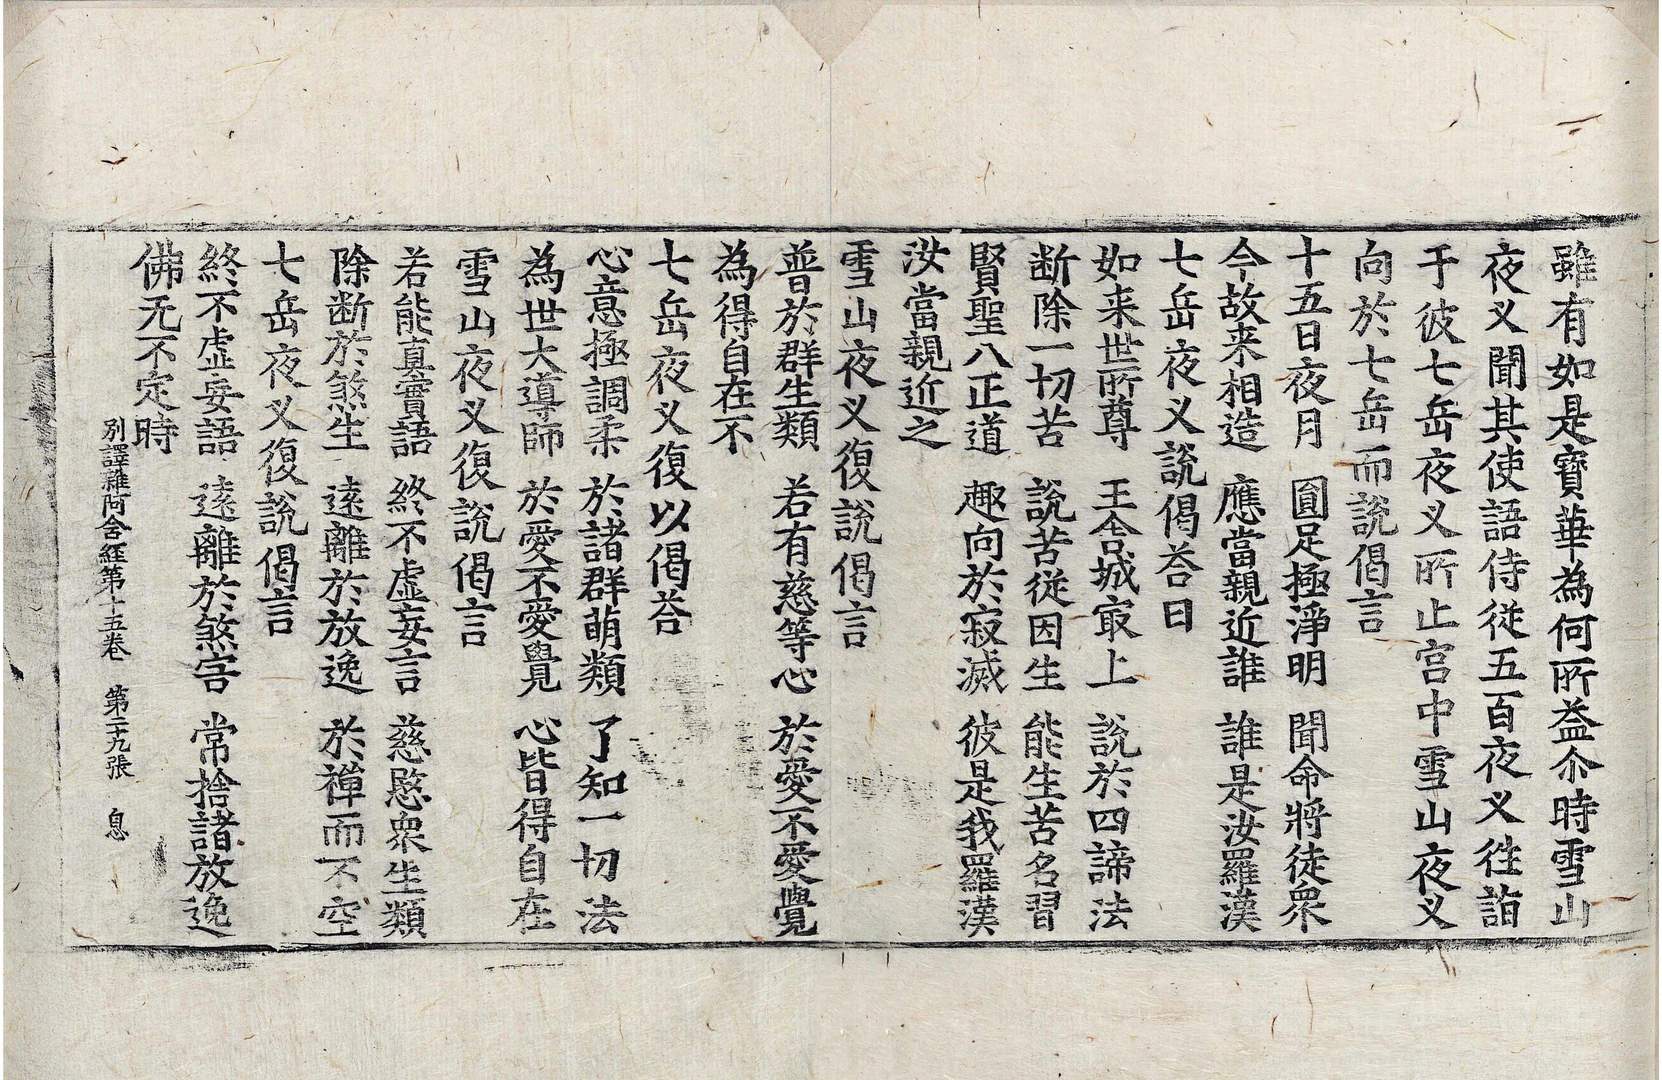 雖有如是寶華為何所益尒時雪山
夜叉聞其使語侍從五百夜叉徃詣
于彼七岳夜叉所止宮中雪山夜叉
向於七岳而說偈言
十五日夜月 圓足極淨明 聞命將徒衆
今故来相造 應當親近誰 誰是汝羅漢
七岳夜叉說偈荅曰
如来世所尊 王舍城㝡上 說於四諦法
断除一切苦 說苦從因生 能生苦名習
賢聖八正道 趣向於寂滅 彼是我羅漢
汝當親近之
雪山夜叉復說偈言
普於群生類 若有慈等心 於愛不愛覺
為得自在不
七岳夜叉復以偈荅
心意極調柔 於諸群萌類 了知一切法
為世大導師 於愛不愛覺 心皆得自在
雪山夜叉復說偈言
若能真實語 終不虛妄言 慈愍衆生類
除断於煞生 遠離於放逸 於禪而不空
七岳夜叉復說偈言
終不虛妄語 遠離於煞害 常捨諸放逸
佛无不定時
別譯雜阿含経第十五卷 第二十九張 息